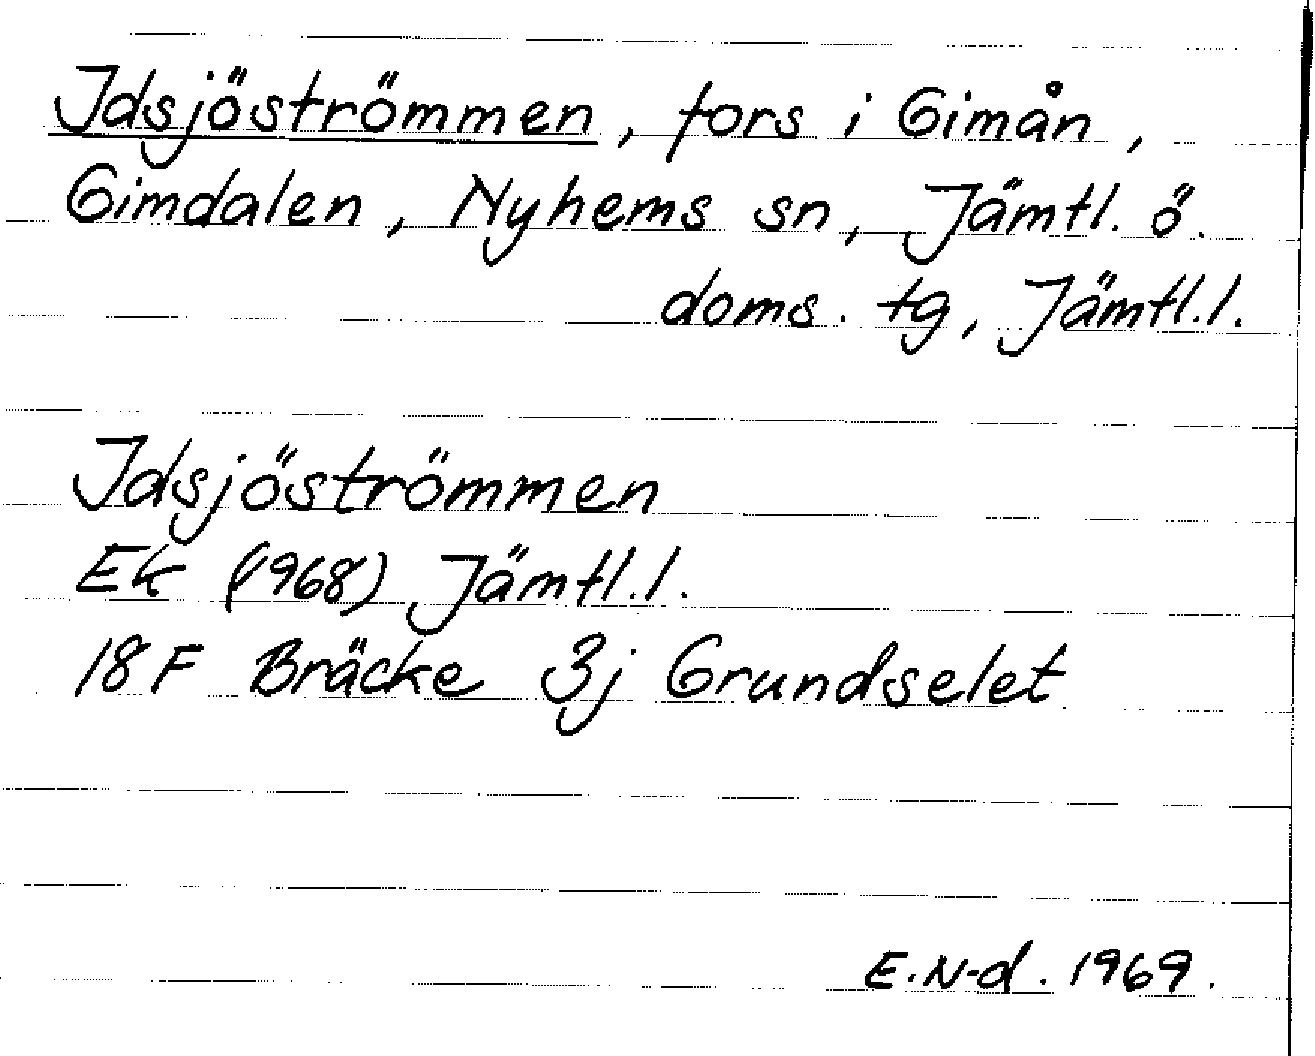 Idsjöströmmen, fors i Gimån,
Gimdalen, Nyhems sn, Jämtl. ö.
doms. tg, Jämtl.l.
Idsjöströmmen
Ek (1968) Jämtl.l.
18F Bräcke 3j Grundselet
E.N-d. 1969.